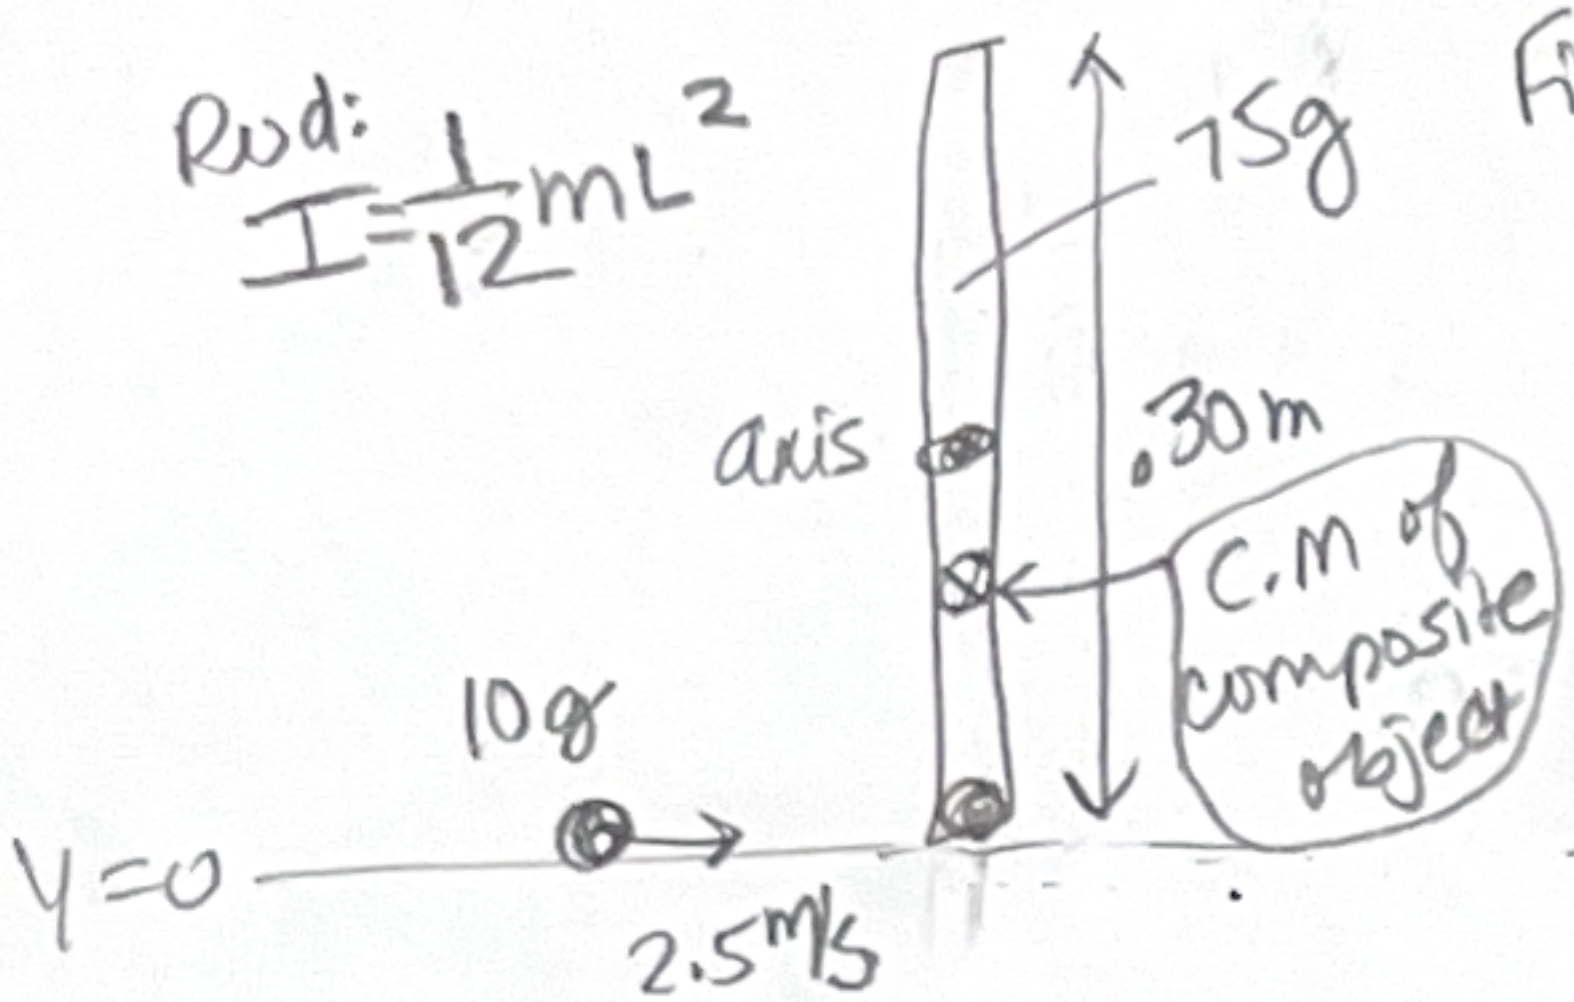 Rod:
I=1/12 mL²
75g
Fi
axis
.30m
C.M of
composite
object
10g
Y=0
2.5 m/s